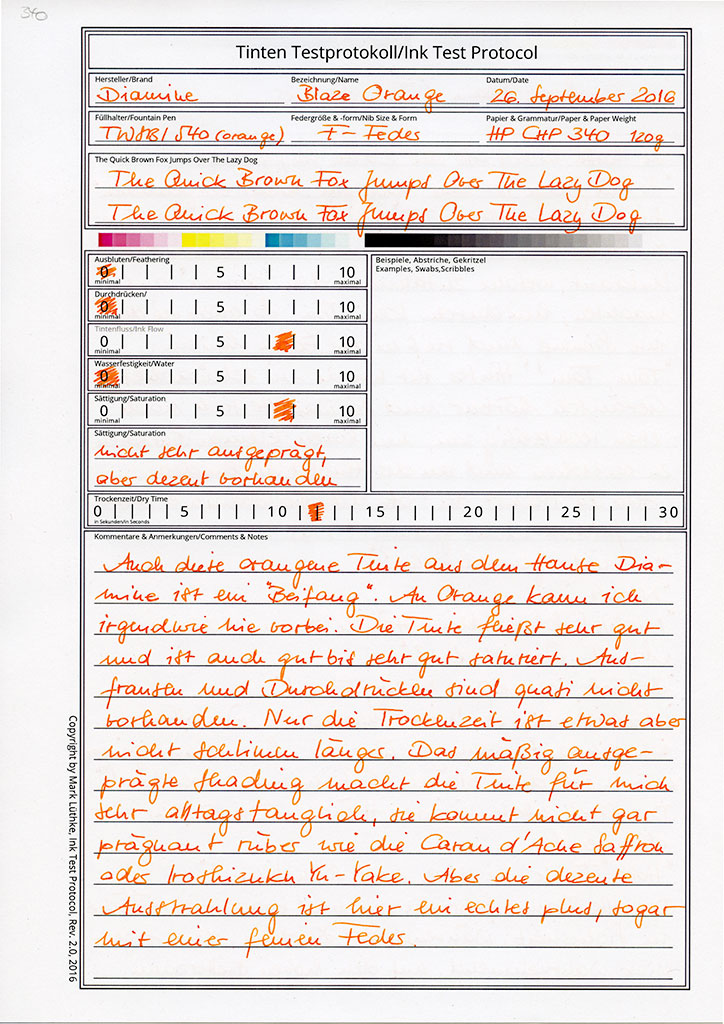 340
Tinten Testprotokoll/Ink Test Protocol
Hersteller/Brand Bezeichnung/Name Datum/Date
Diamine Blaze Orange 26. September 2016
Füllhalter/Fountain Pen Federgröße & -form/Nib Size & Form Papier & Grammatur/Paper & Paper Weight
TWSBI 540 (orange) F - Feder HP CHP 340 120g
The Quick Brown Fox Jumps Over The Lazy Dog
The Quick Brown Fox Jumps Over The Lazy Dog
The Quick Brown Fox Jumps Over The Lazy Dog
Ausbluten/Feathering
0 | | | | 5 | | | | 10
minimal maximal
Durchdrücken/
0 | | | | 5 | | | | 10
minimal maximal
Tintenfluss/Ink Flow
0 | | | | 5 | | | | 10
minimal maximal
Wasserfestigkeit/Water
0 | | | | 5 | | | | 10
minimal maximal
Sättigung/Saturation
0 | | | | 5 | | | | 10
minimal maximal
Sättigung/Saturation
nicht sehr ausgeprägt,
aber dezent vorhanden
Beispiele, Abstriche, Gekritzel
Examples, Swabs,Scribbles
Trockenzeit/Dry Time
0 | | | | 5 | | | | 10 | | | | 15 | | | | 20 | | | | 25 | | | | 30
in Sekunden/in Seconds
Kommentare & Anmerkungen/Comments & Notes
Auch diese orangene Tinte aus dem Hause Dia-
mine ist ein "Beifang". An Orange kann ich
irgendwie nie vorbei. Die Tinte fließt sehr gut
und ist auch gut bis sehr gut saturiert. Aus-
fransen und Durchdrücken sind quasi nicht
vorhanden. Nur die Trockenzeit ist etwas aber
nicht schlimm länger. Das mäßig ausge-
prägte Shading macht die Tinte für mich
sehr alltagstauglich, sie kommt nicht gar
prägnant rüber wie die Caran d'Ache Saffron
oder Iroshizuku Yu-Yake. Aber die dezente
Ausstrahlung ist hier ein echtes plus, sogar
mit einer feinen Feder.
Copyright by Mark Lüthke, Ink Test Protocol, Rev. 2.0, 2016